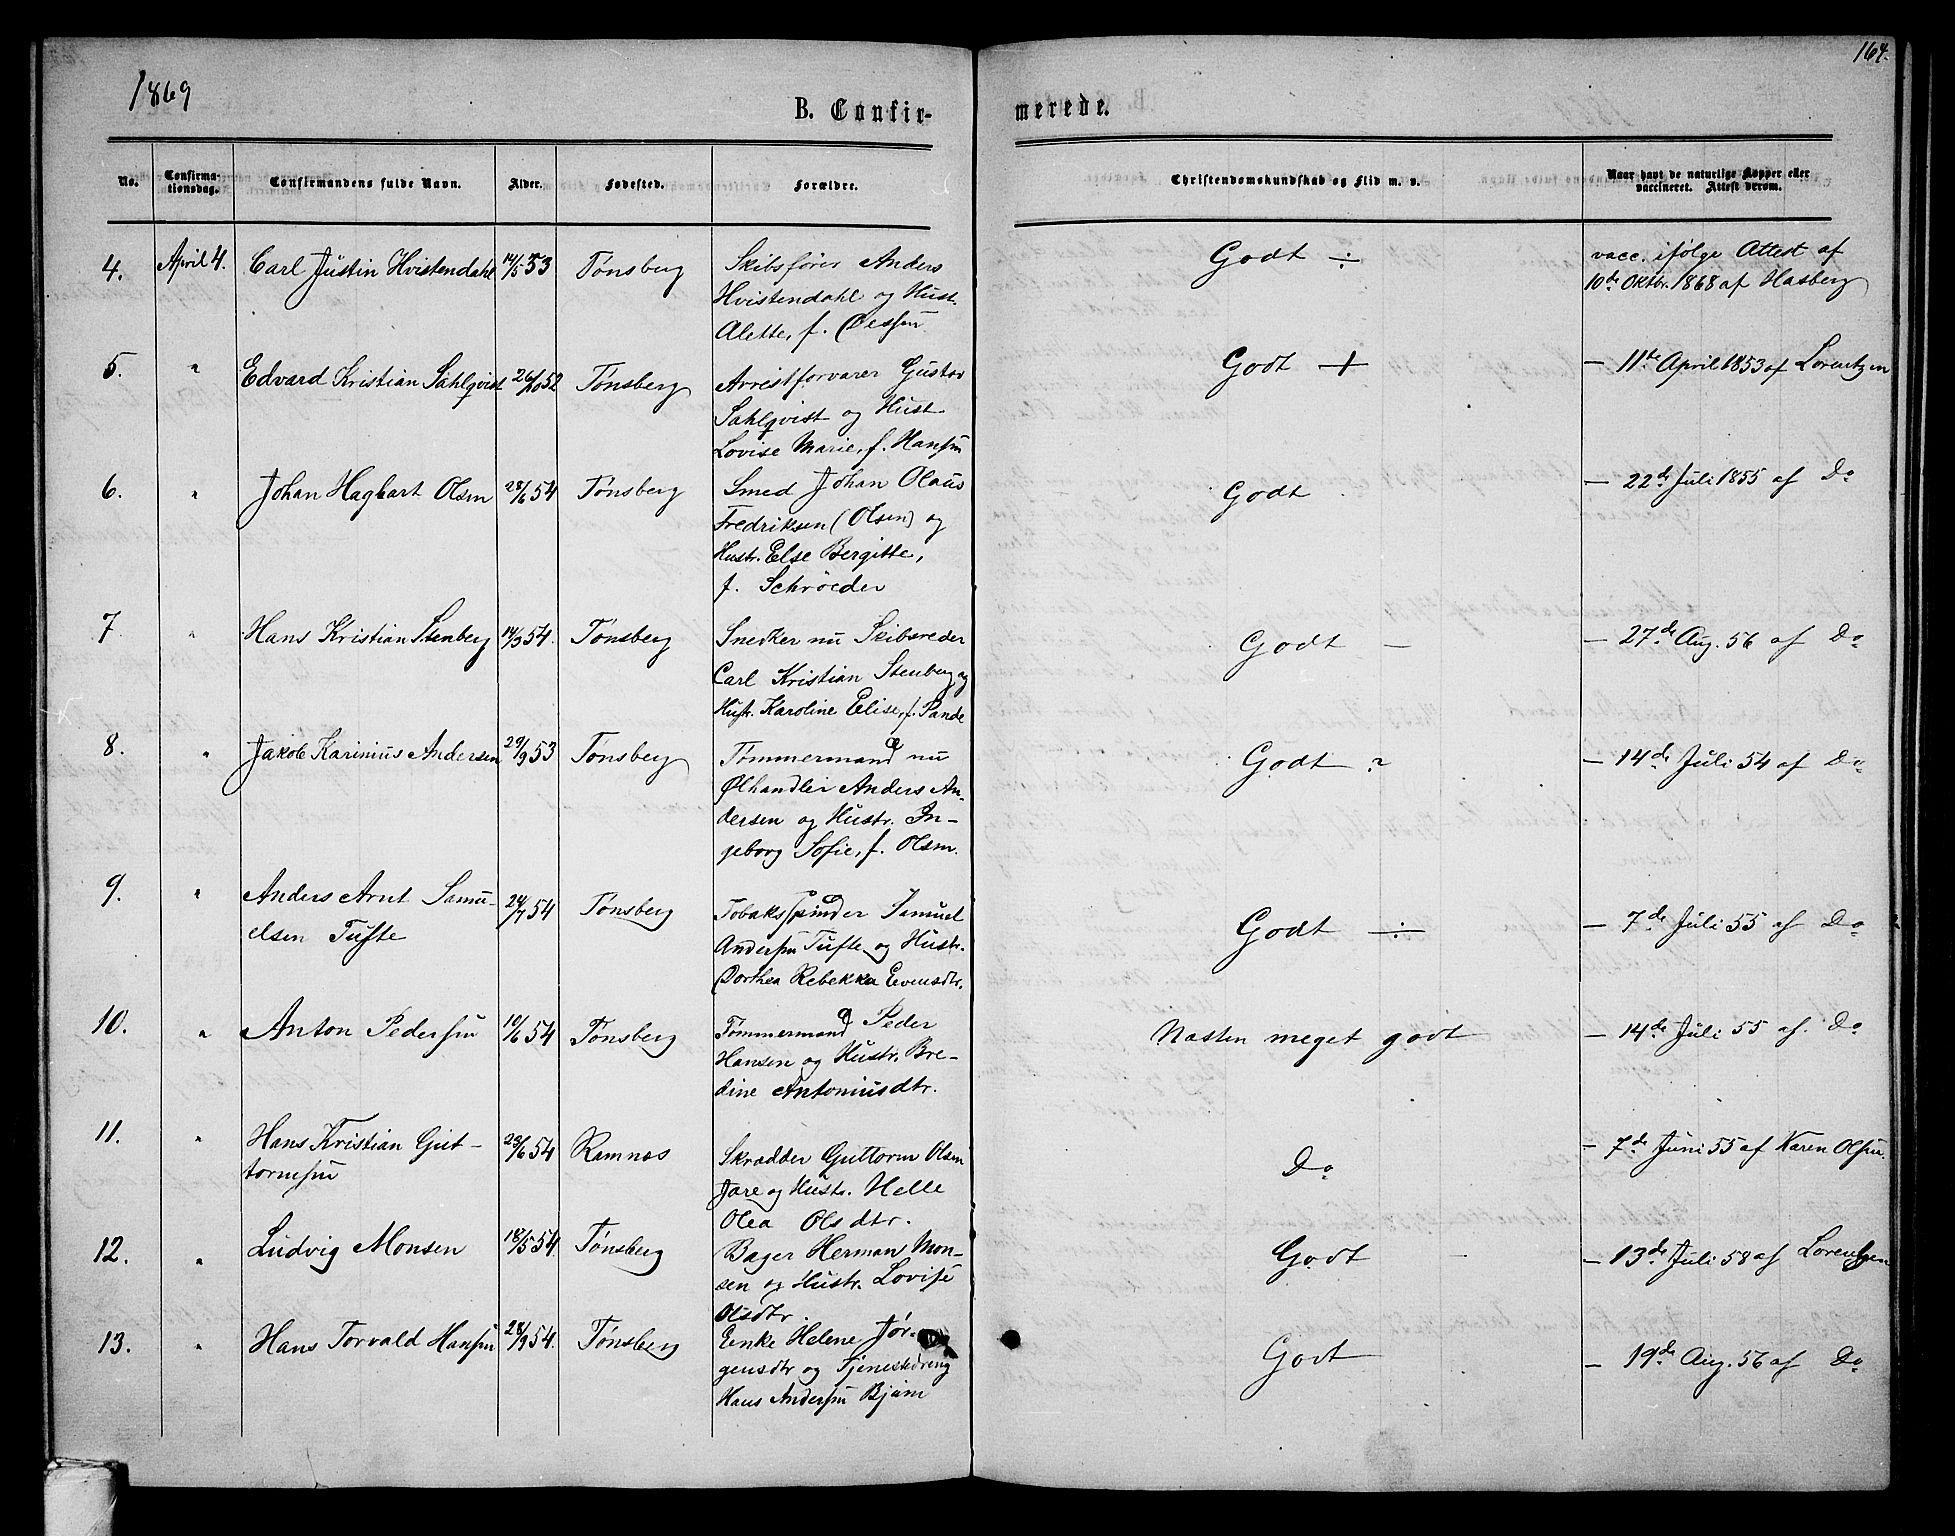 1869
164.
B. Confirmerede.
No. Confirmationsdag. Confirmandens fulde Navn. Alder. Fødested. Forældre. Christendomskundskab og Flid m. v. Naar havt de naturlige Kopper eller vaccineret. Attest derom.
4. April 4. Carl Justin Hvistendahl 14/5 53 Tønsberg Skibsfører Anders Godt ÷ vacc. ifölge Attest af
Hvistendahl og Hust. 10de Oktbr. 1868 af Hasberg
Alette, f.
5. " Edvard Kristian Sahlqvist 26/10 52 Tønsberg Arrestforvarer Gustav Godt + — 11te April 1853 af Lorentzen
Sahlqvist og Hust
Lovise Marie, f. Hansen
6. " Johan Hagbart Olsen 28/6 54 Tønsberg Smed Johan Olaus Godt — 22de Juli 1855 af Do
Fredriksen (Olsen) og
Hustr. Else Bergitte,
f. Schröeder
7. " Hans Kristian Stenberg 14/3 54. Tønsberg Snedker nu Skibsreder Godt — — 27de Aug. 56 af Do
Carl Kristian Stenberg og
Hustr. Karoline Elise, f. Sande
8. " Jakob Karinius Andersen 29/9 53 Tønsberg Tømmermand nu Godt ? — 14de Juli 54 af Do
Ølhandler Anders An-
dersen og Hustr. In-
geborg Sofie, f. Olsen.
9. " Anders Arnt Samu- 24/7 54 Tønsberg Tobakspinder Samuel Godt ÷ — 7de Juli 55 af Do
elsen Tufte Andersen Tufte og Hustr.
Dorthea Rebekka Evensdtr.
10. " Anton Pedersen 10/6 54 Tønsberg Tømmermand Peder Næsten meget godt — 14de Juli 55 af. Do
Hansen og Hustr. Bre-
dine Antoniusdtr.
11. " Hans Kristian Gut- 23/6 54 Ramnæs Skrædder Guttorm Olsen Do — 7de Juni 55 af Karen Olsen.
tormsen Jare og Hustr. Helle
Olea Olsdtr.
12. " Ludvig Monsen 18/5 54. Tønsberg Bager Herman Mon- Godt — 13de Juli 58 af Lorentzen
sen og Hustr. Lovise
Olsdtr.
13. " Hans Torvald Hansen 28/9 54. Tønsberg Enke Helene Jør- Godt — 19de Aug. 56 af Do
gensdtr og Tjenestedreng
Hans Andersen